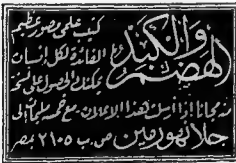 الهضم والكبد
كتيب علمى مصور عظيم
الفائدة لكل انسان
يمكنك الحصول على نسخة
منه مجانا اذا أرسلت هذا الاعلان مع خمسة مليمات الى
جلانهورمين ص.ب ٢١٠٥ بمصر